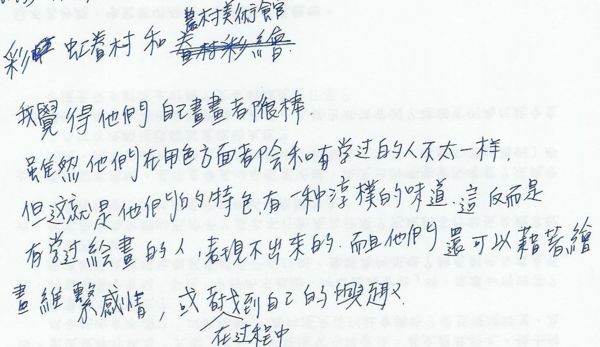 農村美術館
彩虹眷村和眷村彩繪.
我覺得他們自己畫畫都很棒
雖然他們在用色方面都会和有学过的人不太一样,
但这就是他們的特色有一种淳樸的味道.這反而是
有学过绘畫的人,表現不出來的.而且他們還可以藉著繪
畫維繫感情,或找到自己的興趣
在过程中